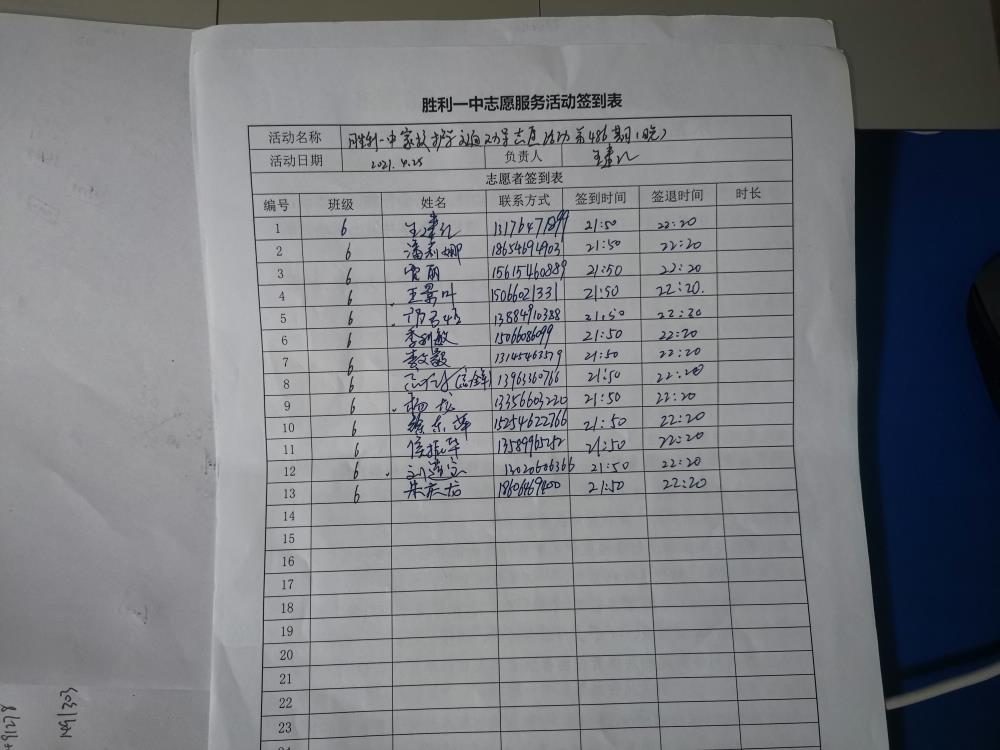 胜利一中志愿服务活动签到表
活动名称 胜利一中家校护学 志愿活动第486期（晚）
活动日期 2021.4.25 负责人
志愿者签到表
编号 班级 姓名 联系方式 签到时间 签退时间 时长
1 6 21:50 22:20
2 6 潘莉娜 18654694903 21:50 22:20
3 6 贾丽 15615460889 21:50 22:20
4 6 王景叶 15066021331 21:50 22:20.
5 6 13884910388 21:50 22:20
6 6 季利敏 15066086099 21:50 22:20
7 6 21:50 22:20
8 6 13963360766 21:50 22:20
9 6 杨龙 13356603220 21:50 22:20
10 6 徐东萍 15254622766 21:50 22:20
11 6 侯振华 21:50 22:20
12 6 13020606366 21:50 22:20
13 6 21:50 22:20
14
15
16
17
18
19
20
21
22
23
91278
1491303